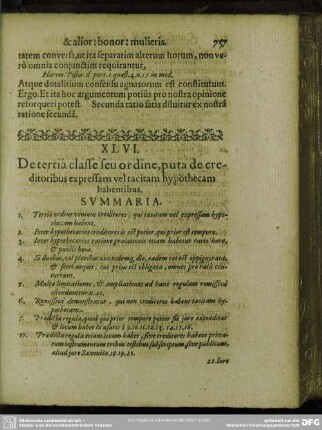 & alior: bonor: mulieris. 757
tatem conversa, ut ita separatim alterum horum, non ve-
rò omnia conjunctim requirantur,
Harem. Pistor. d. part. 1. quæst. 4. n. 15 in med.
Atque dotalitium consensu agnatorum est constitutum.
Ergo. Et ita hoc argumentum potiùs pro nostra opinione
retorqueri potest. Secunda ratio satis diluitur ex nostrâ
ratione secundâ.
XLVI.
De tertiâ classe seu ordine, puta de cre-
ditoribus expressam vel tacitam hypothecam
habentibus.
SVMMARIA.
1. Tertio ordine veniunt creditores, qui tacitam vel expressam hypo-
thecam habent.
2. Inter hypothecarios creditores is est potior, qui prior est tempore.
3. Inter hypothecarios ratione prælationis etiam habetur ratio horæ,
& puncti horæ.
4. Si duobus, vel pluribus uno eodemq; die, eadem res est oppignorata,
& sciri nequit, cui prius est obligata, omnes pro rata con-
currunt.
5. Multæ limitationes, & ampliationes ad hanc regulam remissivè
ostenduntur
6. Remissivè demonstratur, qui non creditores habent tacitam hy-
pothecam.
7. Prædicta regula, quod qui prior tempore potior sit jure expenditur
& locum habet
17. Prædicta regula etiam locum habet, sive creditores habent priva-
tum instrumentum tribus testibus subscriptum, sive publicum,
aliud jure Saxonico, 18. 19. 21.
22. Jure